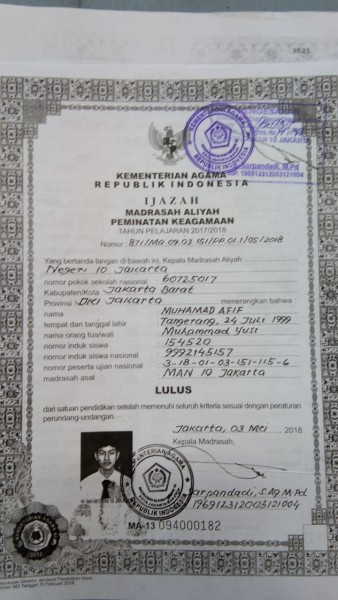 KEMENTERIAN AGAMA
REPUBLIK INDONESIA
IJAZAH
MADRASAH ALIYAH
PEMINATAN KEAGAMAAN
TAHUN PELAJARAN 2017/2018
Nomor : 871/Ma.09.03.151/PP.01.1/05/2018
Yang bertanda tangan di bawah ini, Kepala Madrasah Aliyah
Negeri 10 Jakarta
nomor pokok sekolah nasional 60725017
Kabupaten/Kota Jakarta Barat
Provinsi DKI Jakarta menerangkan bahwa :
nama MUHAMAD AFIF
tempat dan tanggal lahir Tangerang, 24 Juli 1999
nama orang tua/wali Muhammad Yusi
nomor induk siswa 154520
nomor induk siswa nasional 9992145157
nomor peserta ujian nasional 3-18-01-03-151-115-6
madrasah asal MAN 10 Jakarta
LULUS
dari satuan pendidikan setelah memenuhi seluruh kriteria sesuai dengan peraturan
perundang-undangan.
Jakarta, 03 Mei 2018
Kepala Madrasah,
KEMENTERIAN AGAMA
REPUBLIK INDONESIA
arpandadi, S.Ag M.Pd
196912312003121004
MA-13 094000182